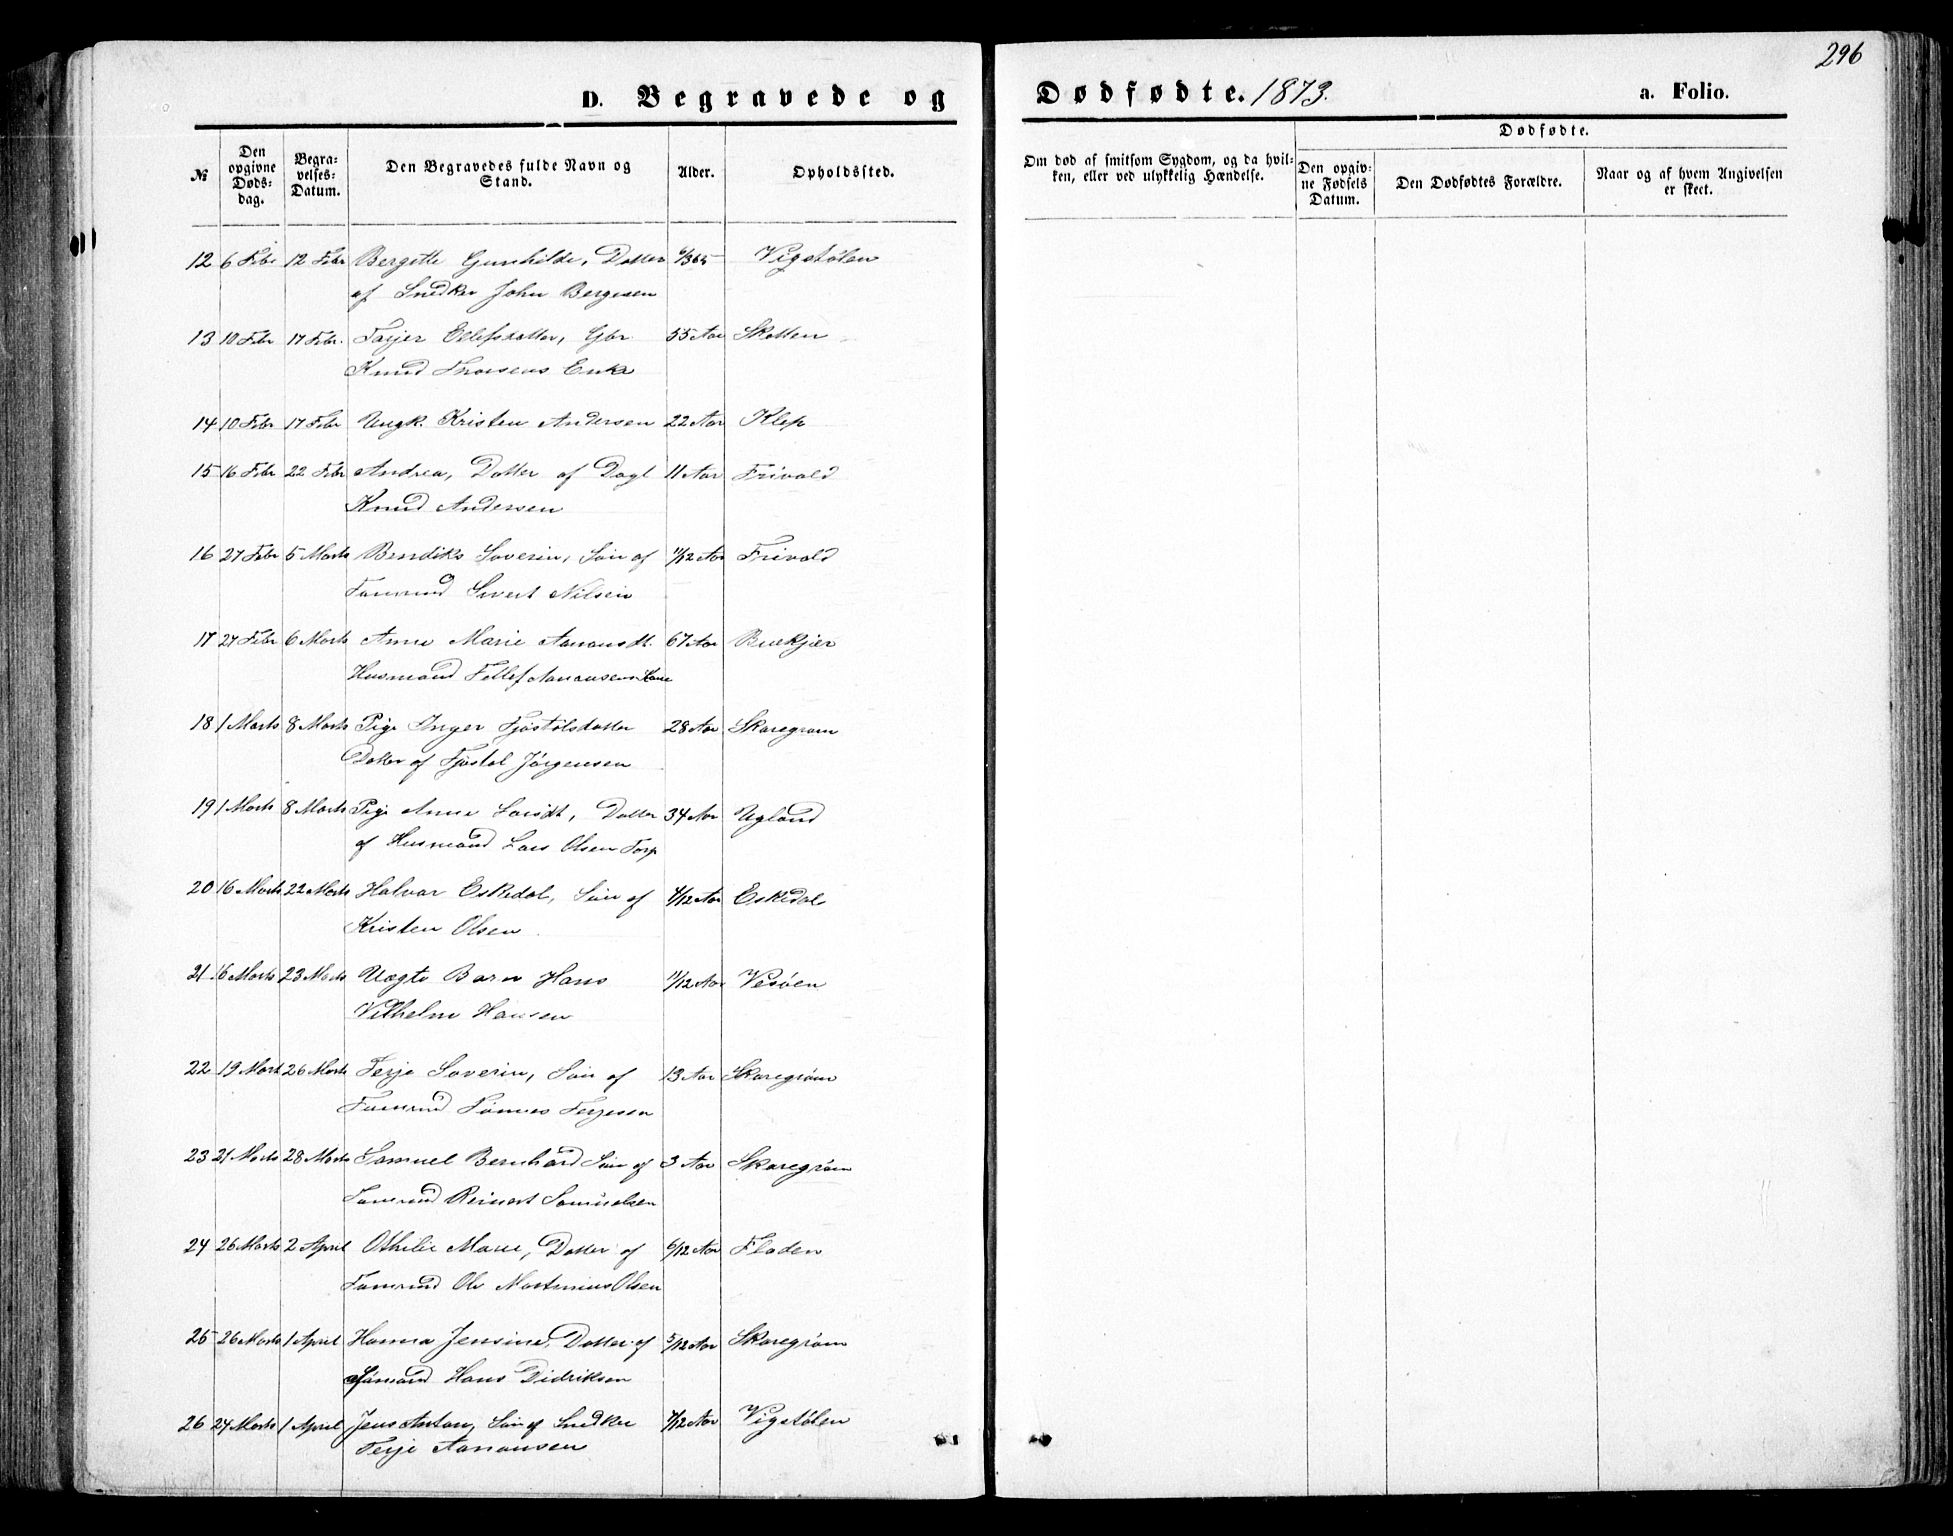 296
D. Begravede og Dødfødte. 1873. a. Folio.
№
Den opgivne Døds-dag.
Begra-velses-Datum.
Den Begravedes fulde Navn og Stand.
Alder.
Opholdssted.
Om død af smitsom Sygdom, og da hvil-ken, eller ved ulykkelig Hændelse.
Dødfødte.
Den opgiv-ne Fødsels Datum.
Den Dødfødtes Forældre.
Naar og af hvem Angivelsen er skeet.
12 6 Febr 12 Febr Bergitte Gunhilde, Datter 6/365 Vigstølen
af Snedker John Bergesen
13 10 Febr 17 Febr. Tarjer Ellefsdatter, Gbr 55 Aar Skotten
Knud Enke
14 10 Febr 17 Febr Ungk. Kristen Andersen 22 Aar Klep
15 16 Febr 22 Febr Andrea, Datter af Dagl 11 Aar Frivold
Knud Andersen
16 27 Febr 5 Marts Bendiks Severin, Søn af 11/12 Aar Frivold
Tømmd Sivert Nilsen
17 27 Febr 6 Marts Anne Marie Aanonsdt. 67 Aar Buekjær
Husmand Tellef Aanonsens Kone
18 1 Marts 8 Marts Pige Inger Fjøstølsdatter 28 Aar Skaregrøm
Datter af Fjøstøl Jørgensen
19 1 Marts 8 Marts Pige Anne Larsdt, Datter 34 Aar Ugland
af Husmand Lars Olsen Torp
20 16 Marts 22 Marts Halvar Eskedal, Søn af 4/12 Aar Eskedal
Kristen Olsen
21 16 Marts 23 Marts Uægte Barn Hans 11/12 Aar Vesøen
Vilhelm Hansen
22 19 Marts 26 Marts Terje Severin, Søn af 13 Aar Skaregrøm
Tømmd Tønnes Terjesen
23 21 Marts 28 Marts Samuel Bernhard Søn af 3 Aar Skaregrøm
Tømmd Reinert Samuelsen
24 26 Marts 2 April Othilie Marie, Datter af 6/12 Aar Fladen
Tømmd Ole Martinius Olsen
25 26 Marts 1 April Hanna Jensine, Datter af 5/12 Aar Skaregrøm
Sømand Hans Didriksen
26 24 Marts 1 April Jens Anton, Søn af Snedker 7/12 Aar Vigstølen
Terje Aanonsen